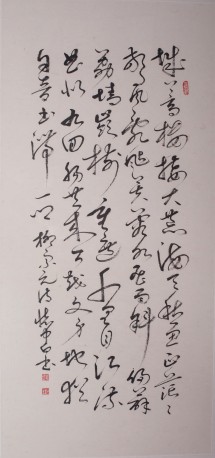 城上高樓接大荒海天愁思正茫〻
驚風亂颭芙蓉水密雨斜侵薜
荔墙嶺樹重遮千里目江流
曲似九回腸共來百越文身地猶
自音書滯一鄉 柳宗元詩 書